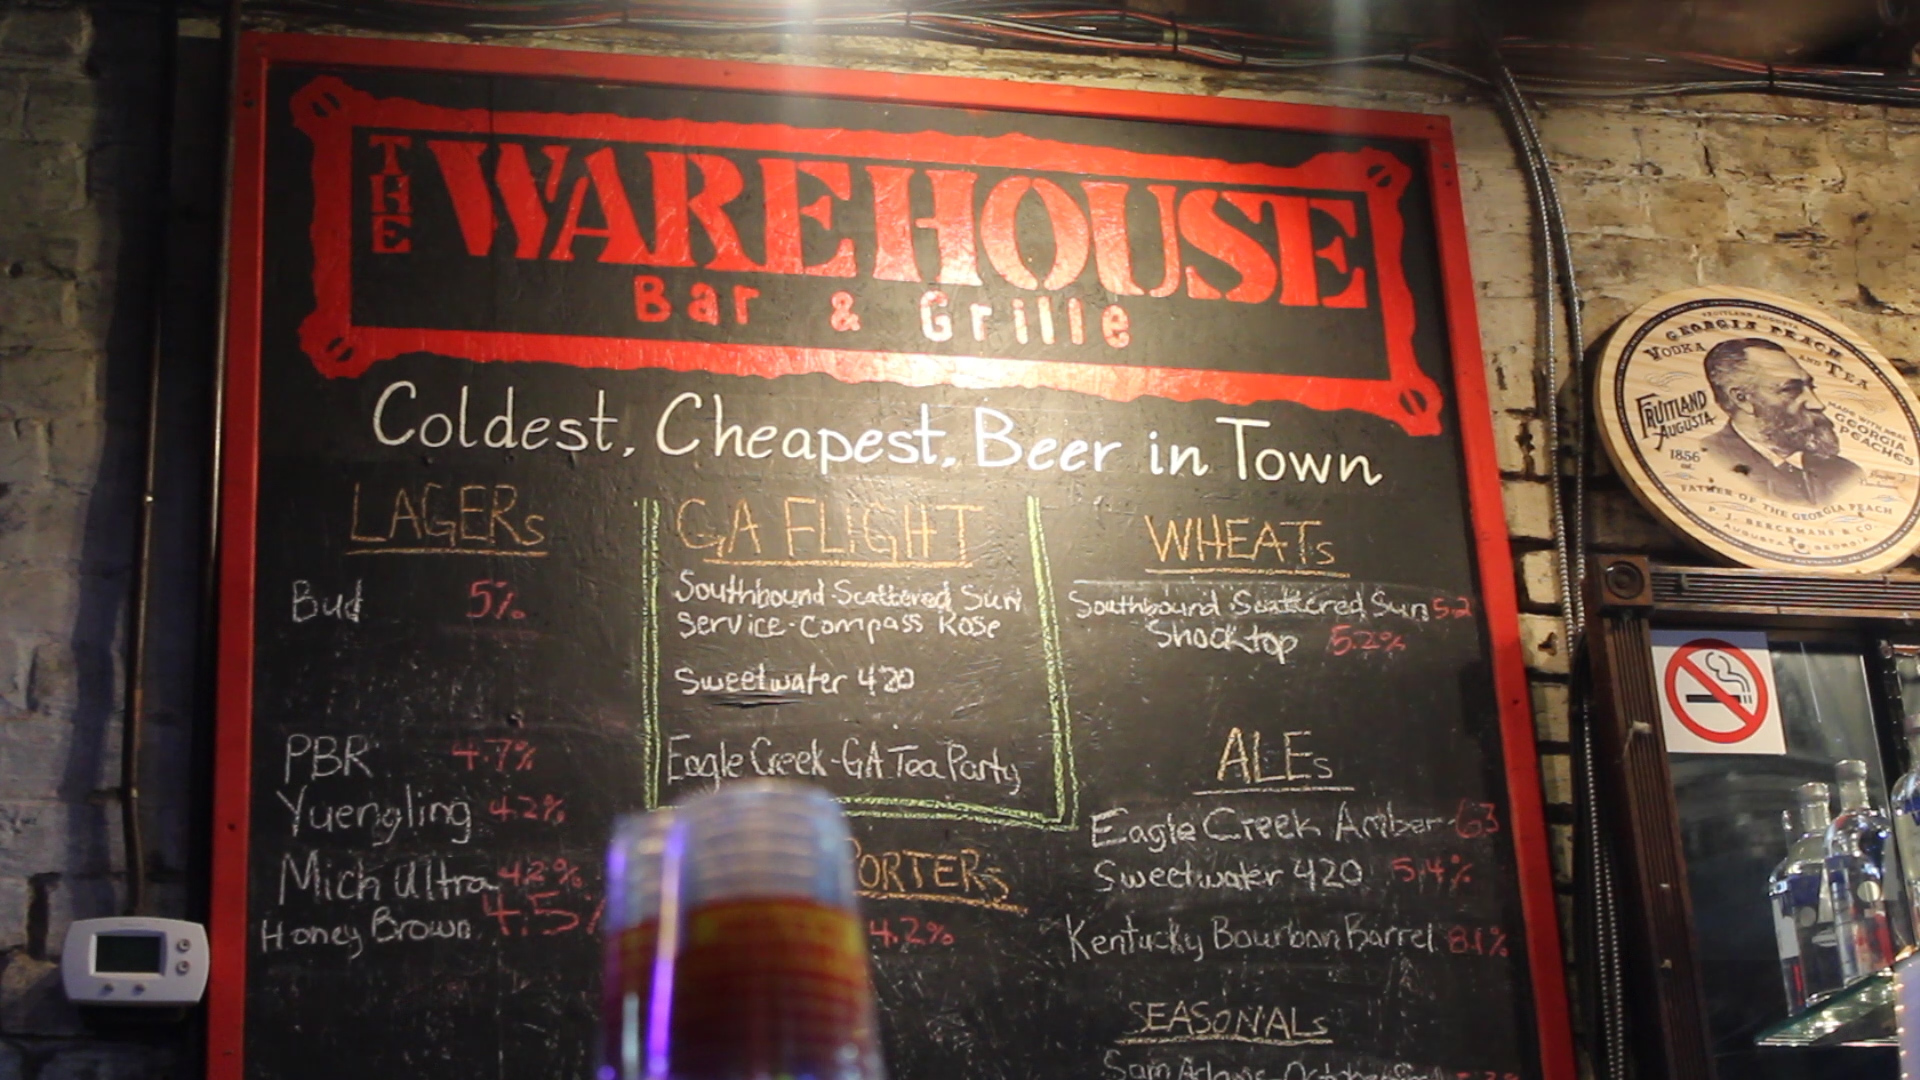 THE WAREHOUSE
Bar & Grille
Coldest, Cheapest, Beer in Town
LAGERs
Bud 5%
PBR 4.7%
Yuengling 4.2%
Mich Ultra 4.2%
Honey Brown 4.5%
GA FLIGHT
Southbound Scattered Sun
Service-Compass Rose
Sweetwater 420
Eagle Creek-GA Tea Party
PORTERs
4.2%
WHEATs
Southbound Scattered Sun 5.2
Shocktop 5.2%
ALEs
Eagle Creek Amber 6.3
Sweetwater 420 5.4%
Kentucky Bourbon Barrel 8.1%
SEASONALs
Sam Adams-
FRUITLAND AUGUSTA
GEORGIA PEACH
VODKA AND TEA
FRUITLAND
AUGUSTA
1856
est.
MADE WITH REAL
GEORGIA
PEACHES
FATHER OF THE GEORGIA PEACH
P. J. BERCKMANS & CO.
AUGUSTA GEORGIA